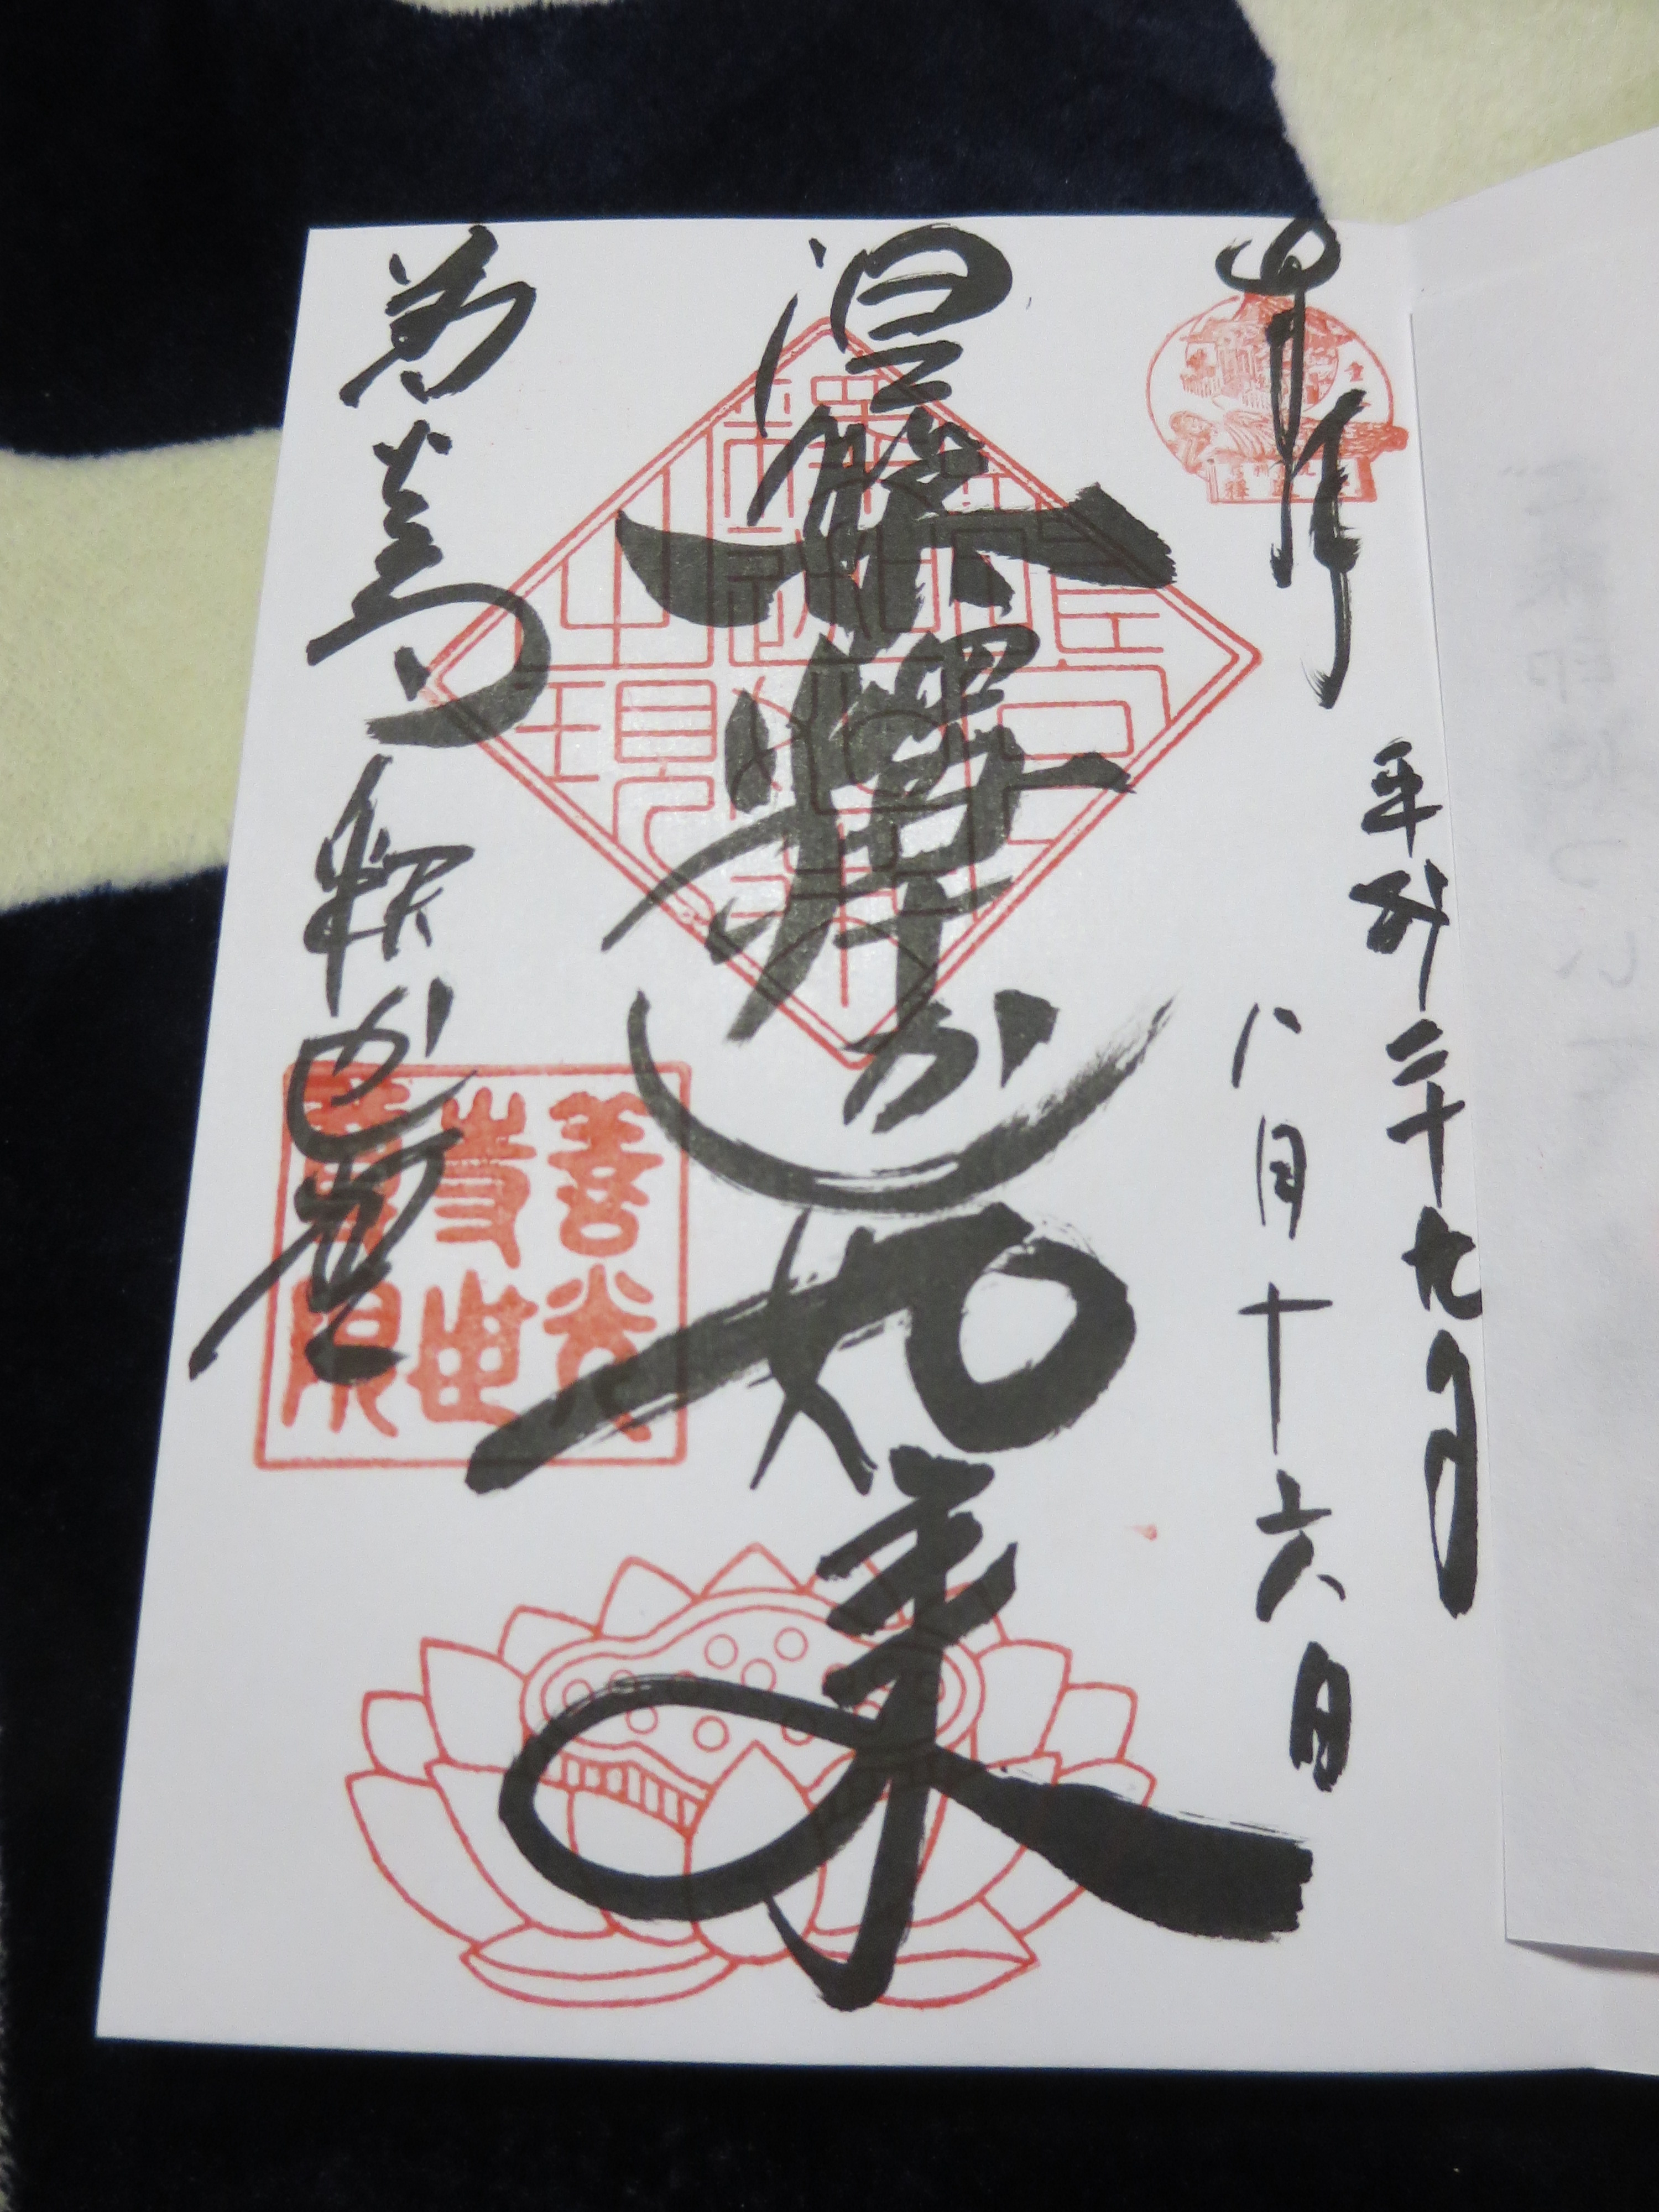 奉拝
平成二十九年
八月十六日
涅槃釋か如来
善光寺 釈か堂
善光
寺世
尊院